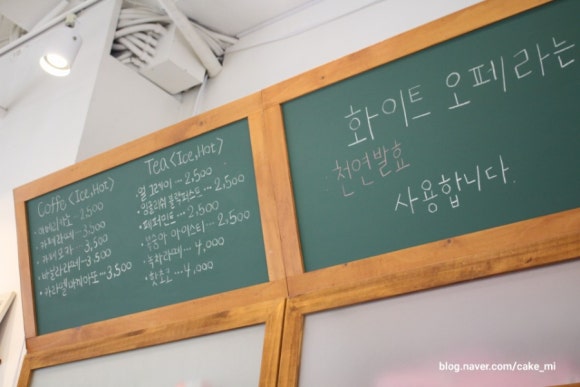 Coffe <Ice, Hot>
· 아메리카노 ··· 2,500
· 카페라떼 ··· 3,000
· 카페모카 ··· 3,500
· 바닐라라떼 ··· 3,500
· 카라멜마끼아또 ··· 3,500
Tea <Ice, Hot>
· 얼그레이 ··· 2,500
· 잉글리쉬 블랙퍼스트 ··· 2,500
· 페퍼민트 ··· 2,500
· 복숭아 아이스티 ··· 2,500
· 녹차라떼 ··· 4,000
· 핫초코 ··· 4,000
화이트 오페라는
천연발효
사용합니다.
blog.naver.com/cake_mi